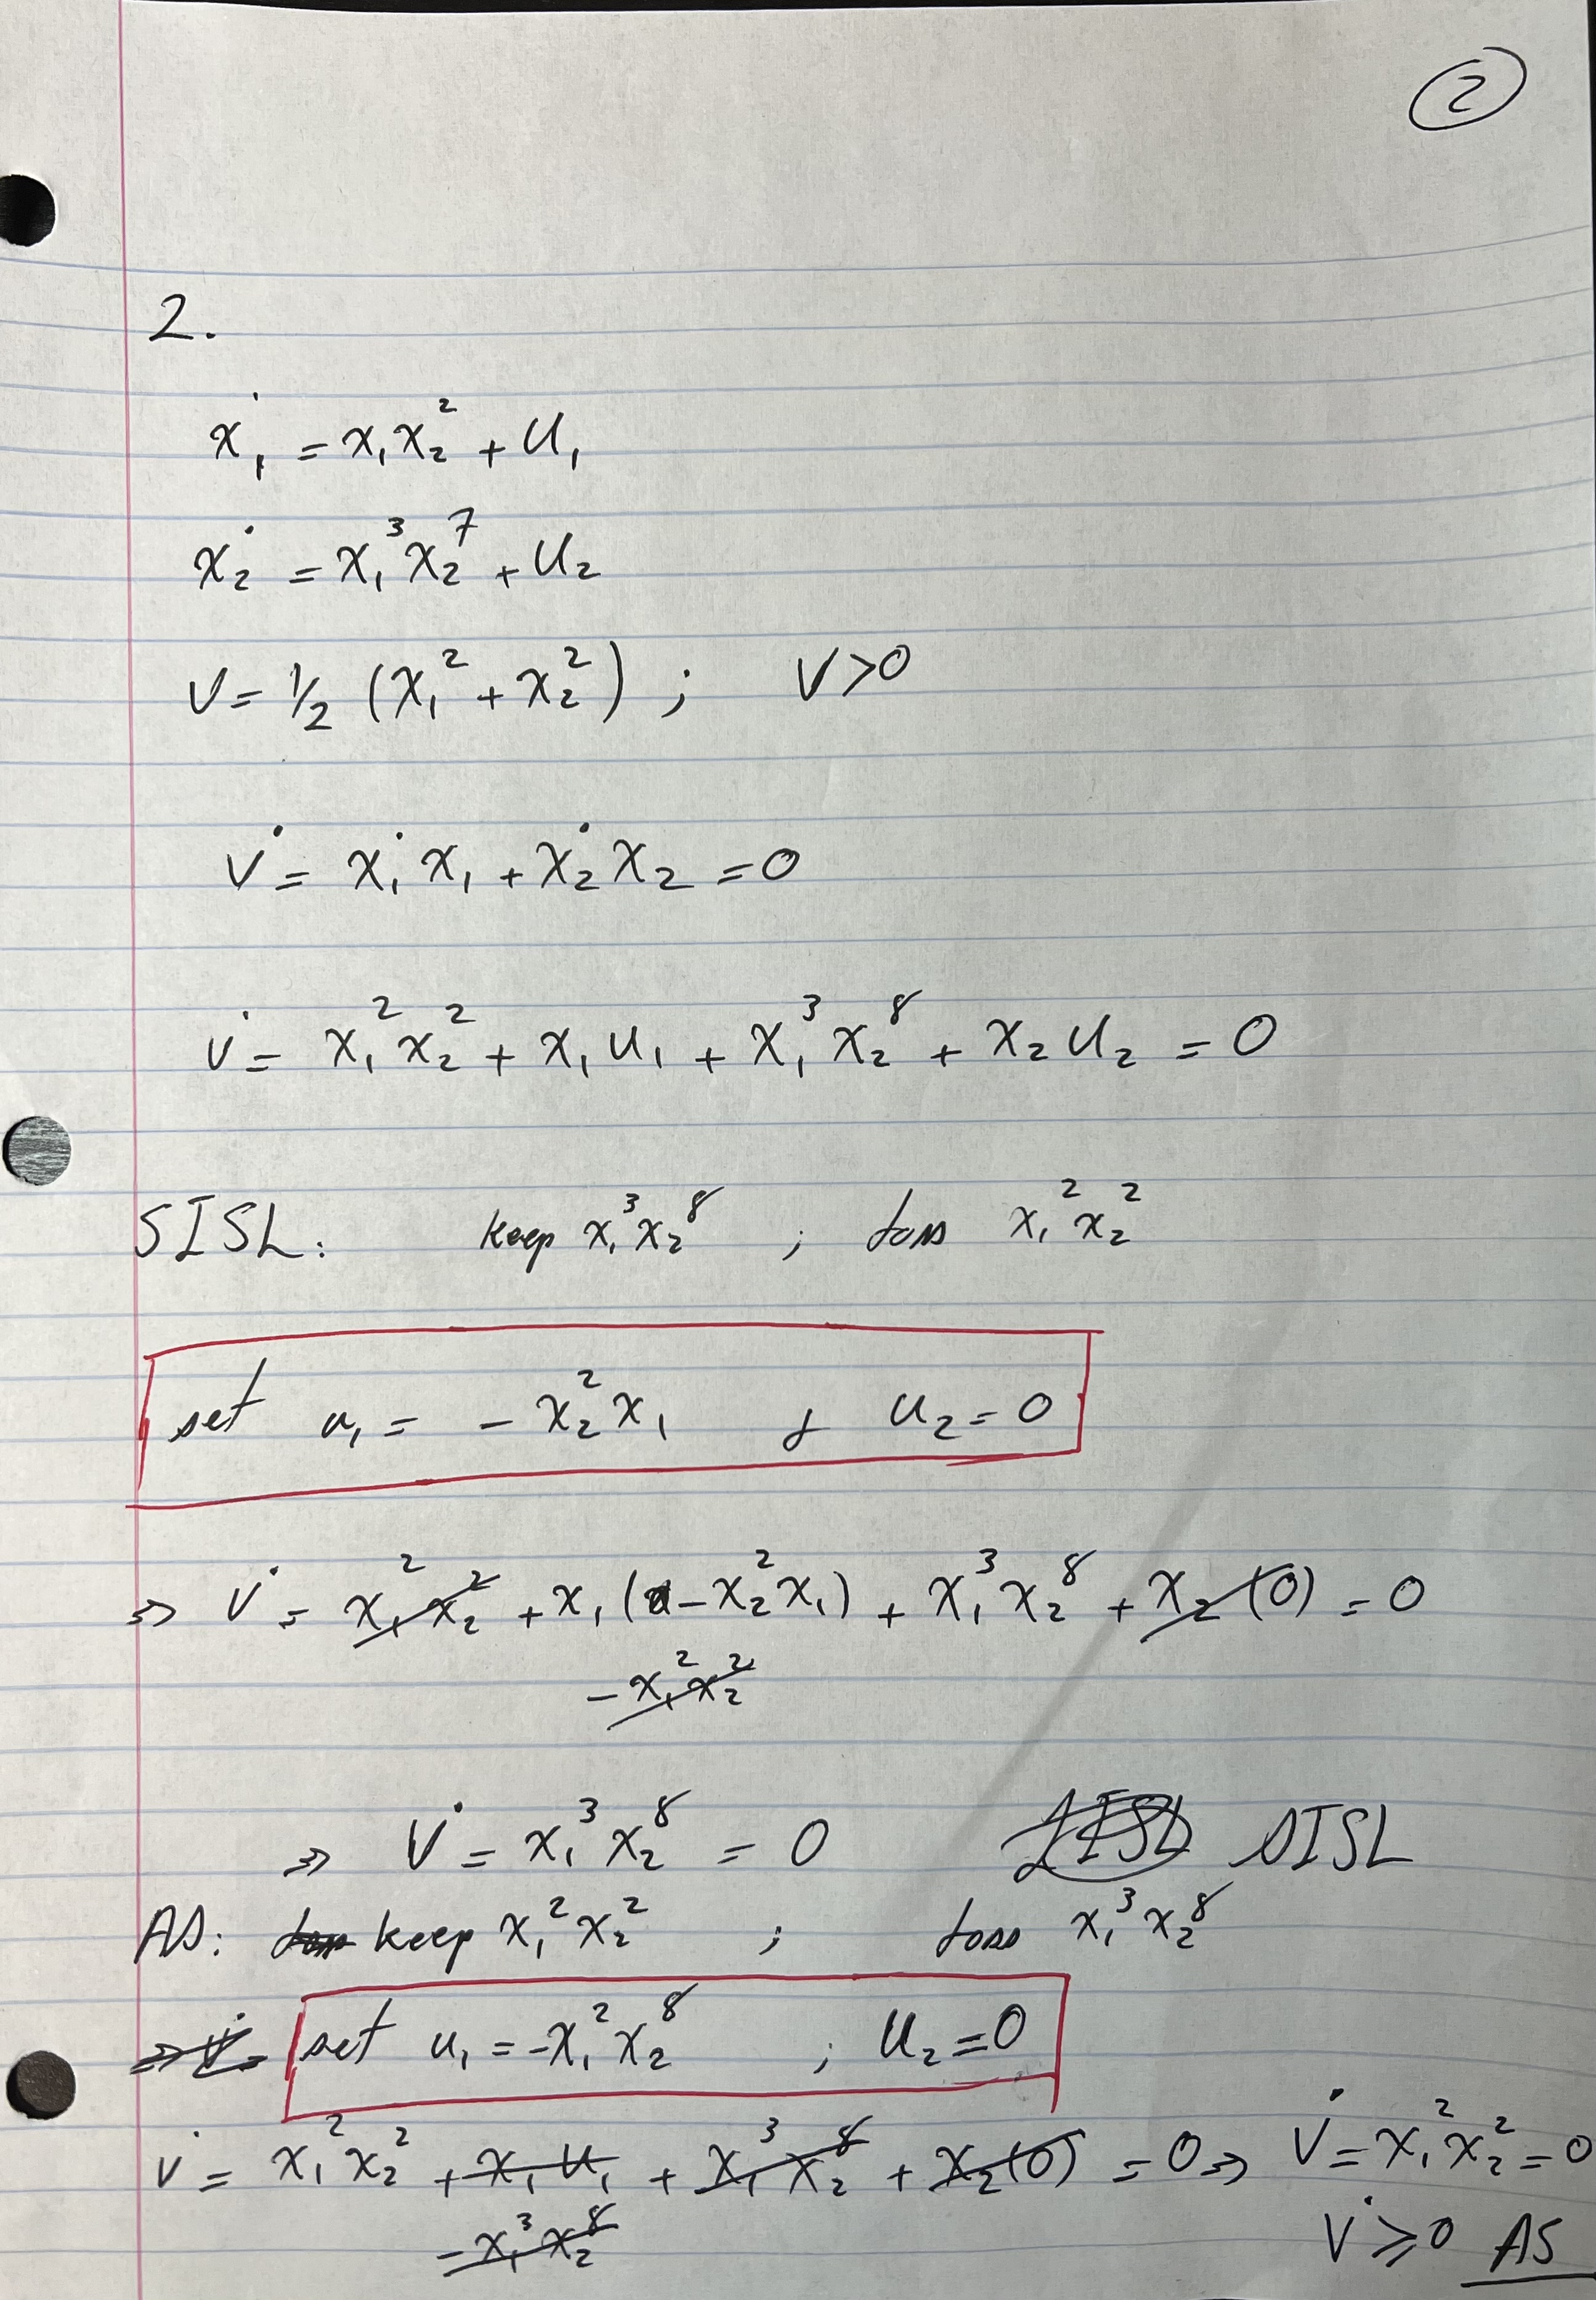 2
2.
ẋ₁ = x₁x₂² + u₁
ẋ₂ = x₁³x₂⁷ + u₂
V = 1/2 (x₁² + x₂²) ; V>0
V̇ = ẋ₁x₁ + ẋ₂x₂ = 0
V̇ = x₁²x₂² + x₁u₁ + x₁³x₂⁸ + x₂u₂ = 0
SISL: keep x₁³x₂⁸ ; toss x₁²x₂²
set u₁ = - x₂²x₁ & u₂ = 0
⇒ V̇ = x₁²x₂² + x₁(-x₂²x₁) + x₁³x₂⁸ + x₂(0) = 0
-x₁²x₂²
⇒ V̇ = x₁³x₂⁸ = 0 SISL
AS: keep x₁²x₂² ; toss x₁³x₂⁸
⇒ V̇ = set u₁ = -x₁²x₂⁸ ; u₂ = 0
V̇ = x₁²x₂² + x₁u₁ + x₁³x₂⁸ + x₂(0) = 0 ⇒ V̇ = x₁²x₂² = 0
-x₁³x₂⁸ V̇ ≥ 0 AS